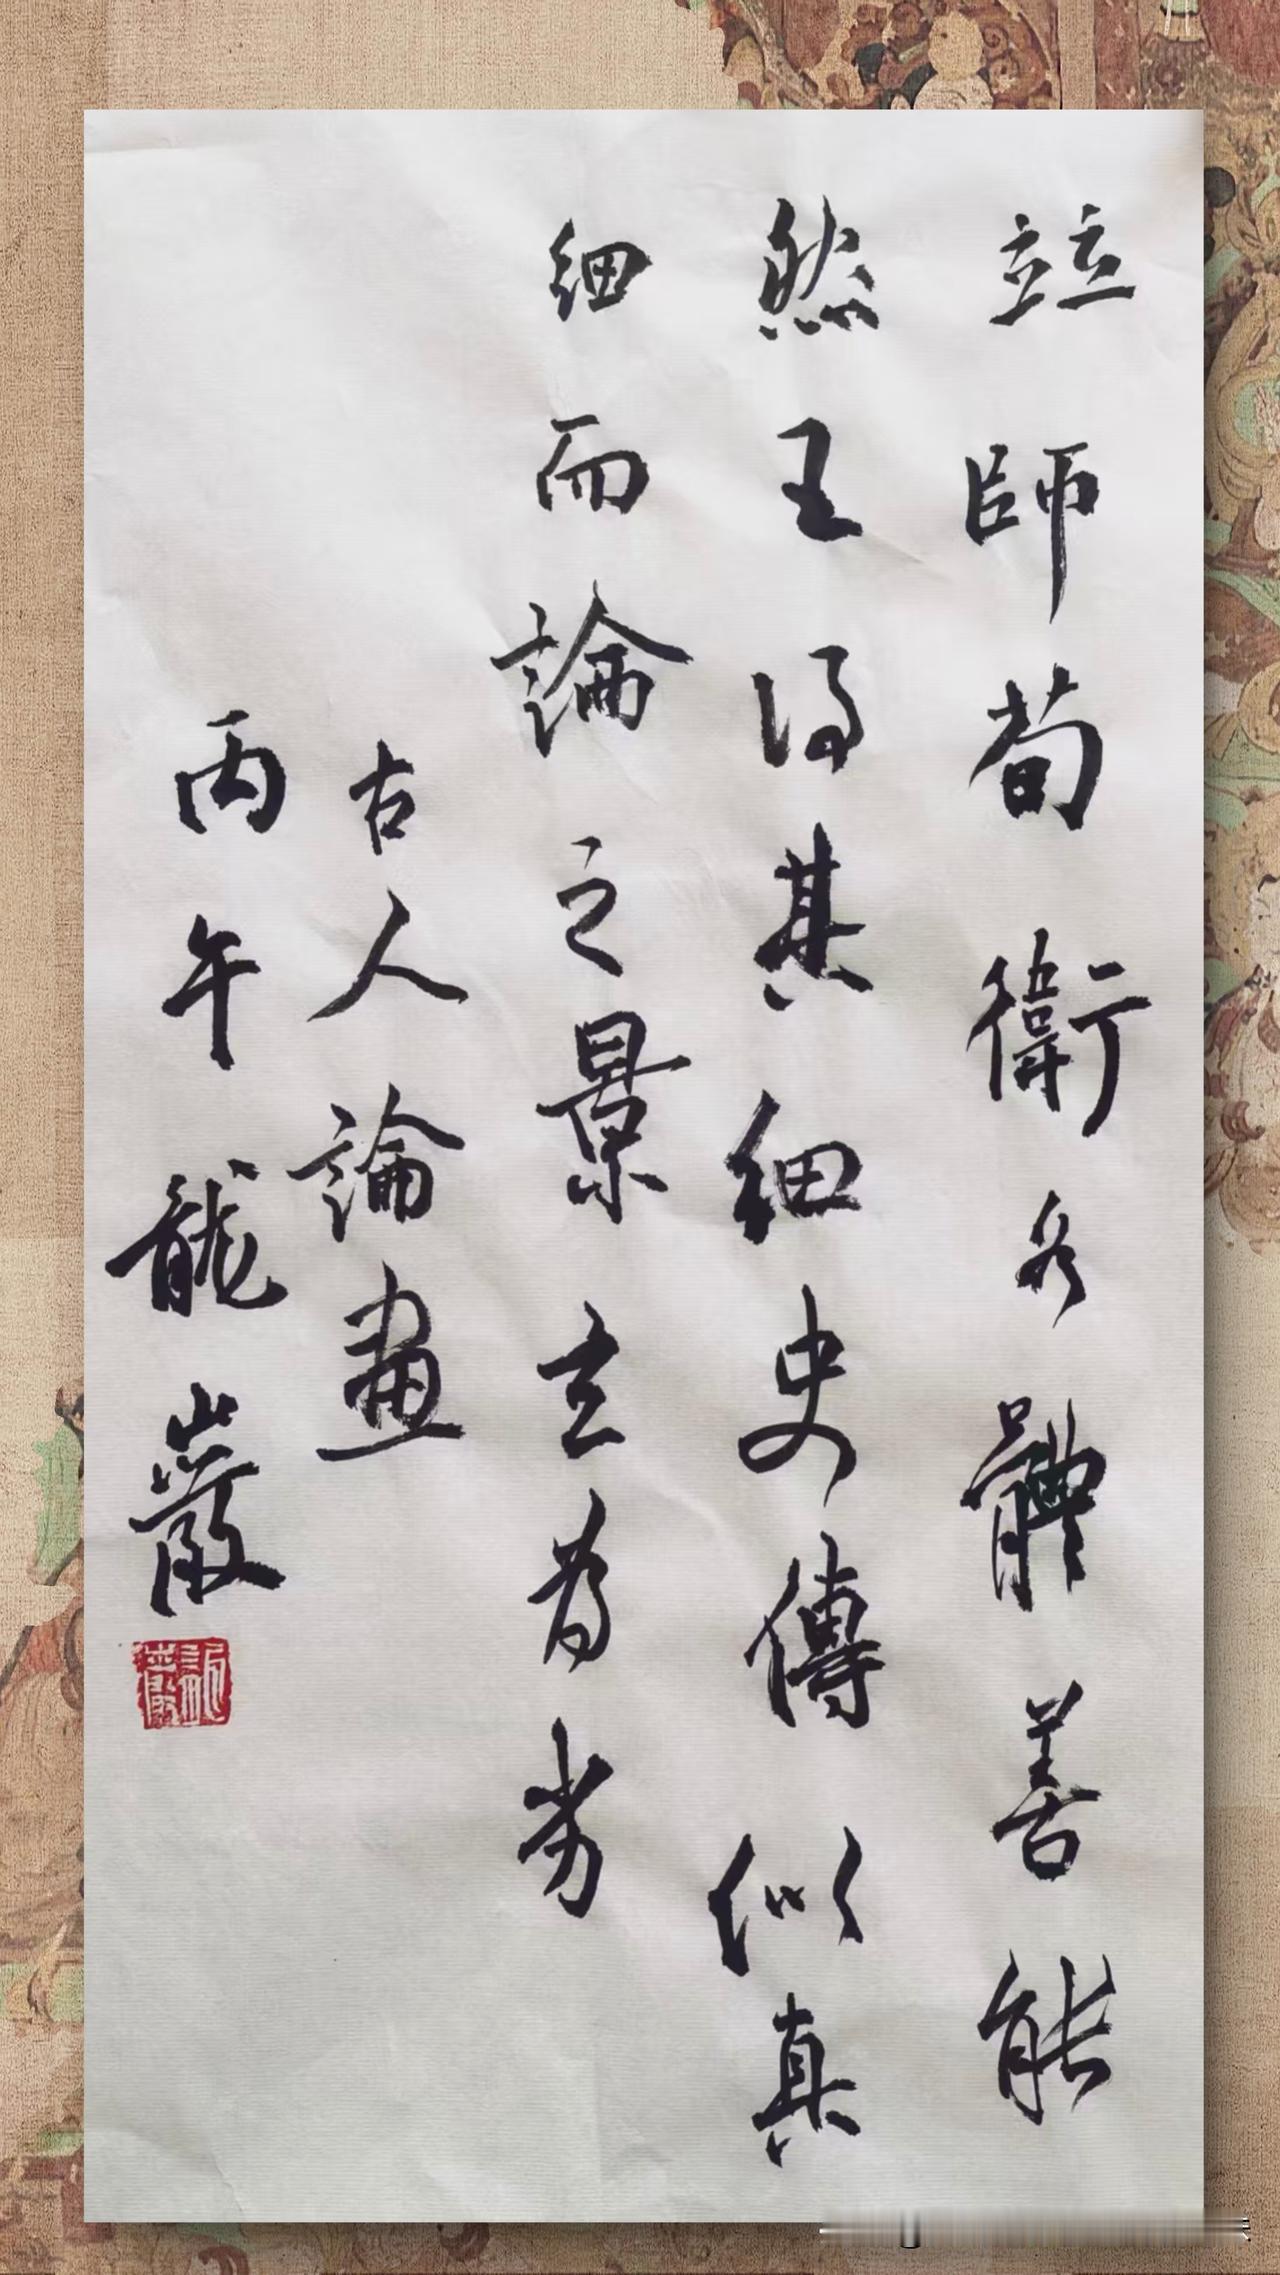 竝師荀衛各體善能
然王得其細史傳似真
細而論之景玄為劣
古人論畫
丙午龍巖